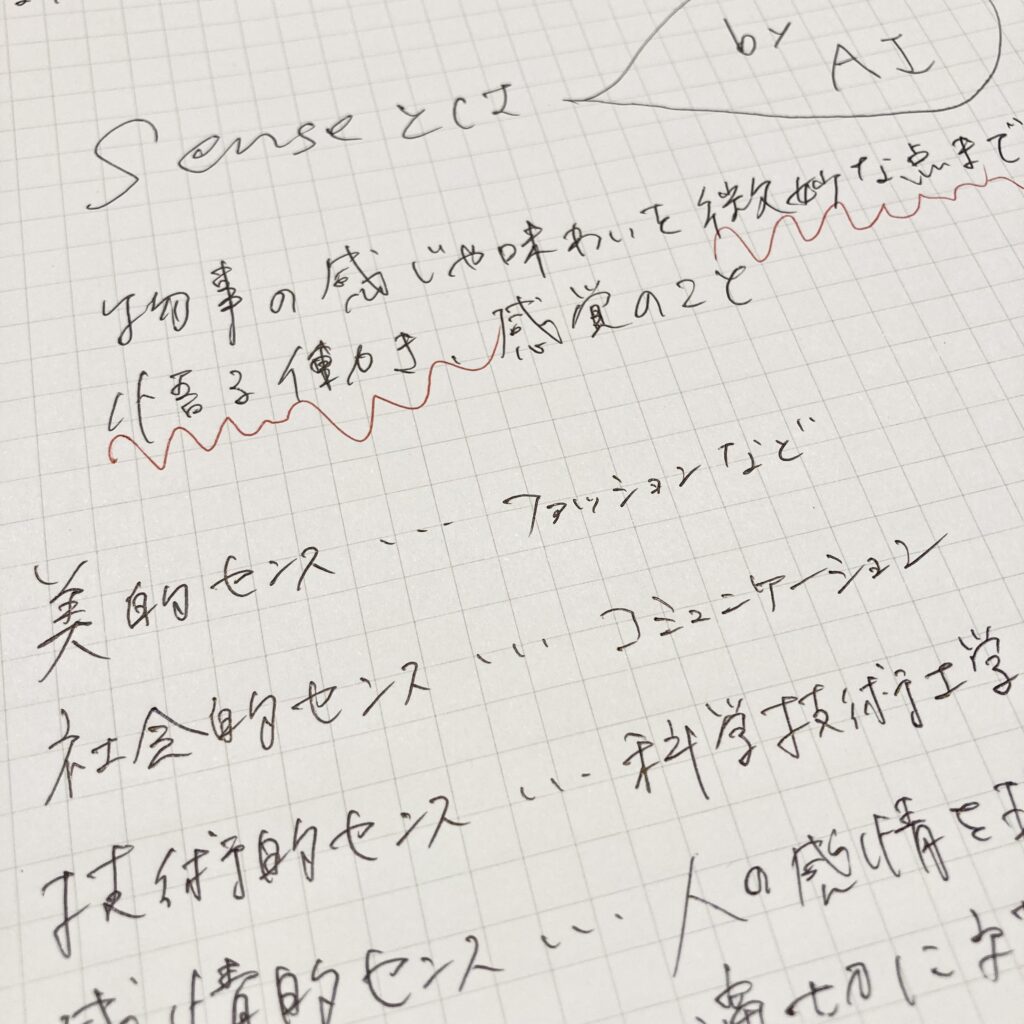 Senseとは
by AI
物事の感じや味わいを微妙な点まで
悟る働き、感覚のこと
美的センス … ファッションなど
社会的センス … コミュニケーション
技術的センス … 科学技術工学
感情的センス … 人の感情を
適切に